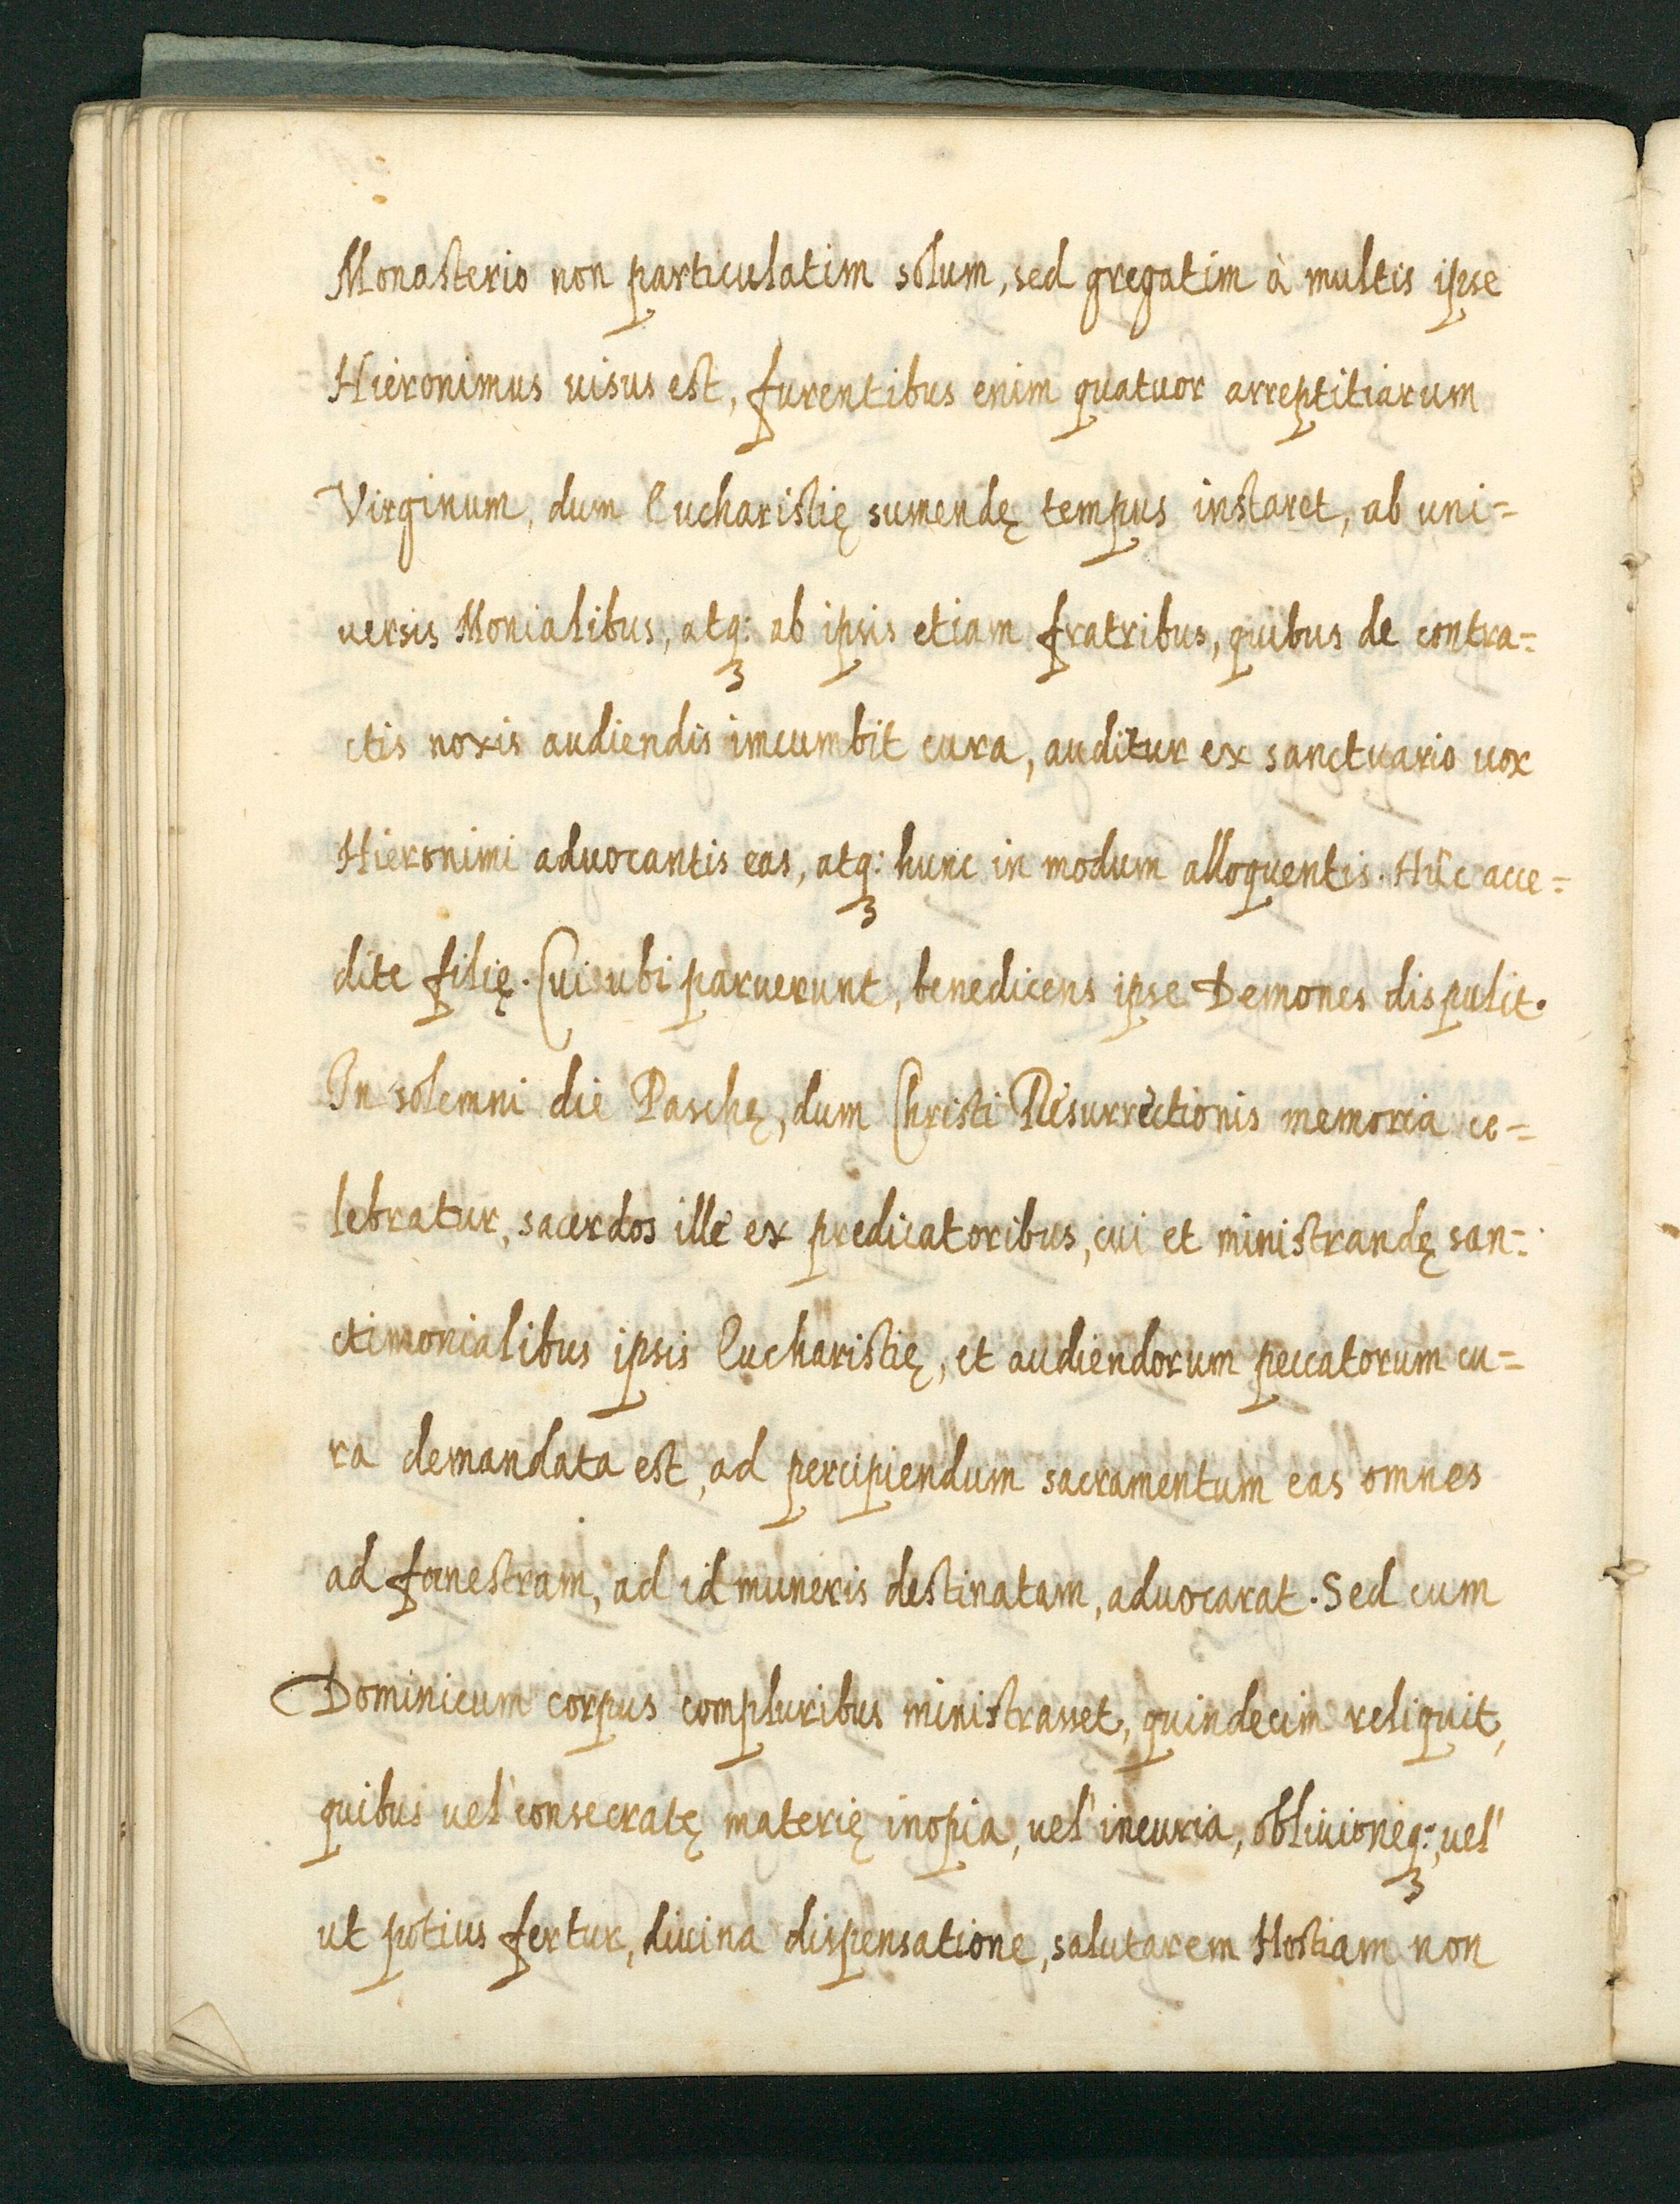 Monasterio non particulatim solum, sed gregatim à multis ipse
Hieronimus uisus est, furentibus enim quatuor arreptitiarum
Virginum, dum Eucharistię sumendę tempus instaret, ab uni=
uersis Monialibus, atq: ab ipsis etiam fratribus, quibus de contra=
ctis noxis audiendis imcumbit cura, auditur ex sanctuario uox
Hieronimi aduocantis eas, atq: hunc in modum alloquentis. Hûc acce=
dite filię. Cui ubi paruerunt, benedicens ipse Demones dispulit.
In solemni die Paschę, dum Christi Resurrectionis memoria ce=
lebratur, sacerdos ille ex predicatoribus, cui et ministrandę san=
ctimonialibus ipsis Eucharistię, et audiendorum peccatorum cu=
ra demandata est, ad percipiendum sacramentum eas omnes
ad fœnestram, ad id muneris destinatam, aduocarat. Sed cum
Dominicum corpus compluribus ministrasset, quindecim reliquit,
quibus uel consecratę materię inopia, uel incuria, obliuioneq:, uel
ut potius fertur, diuina dispensatione, salutarem Hostiam non